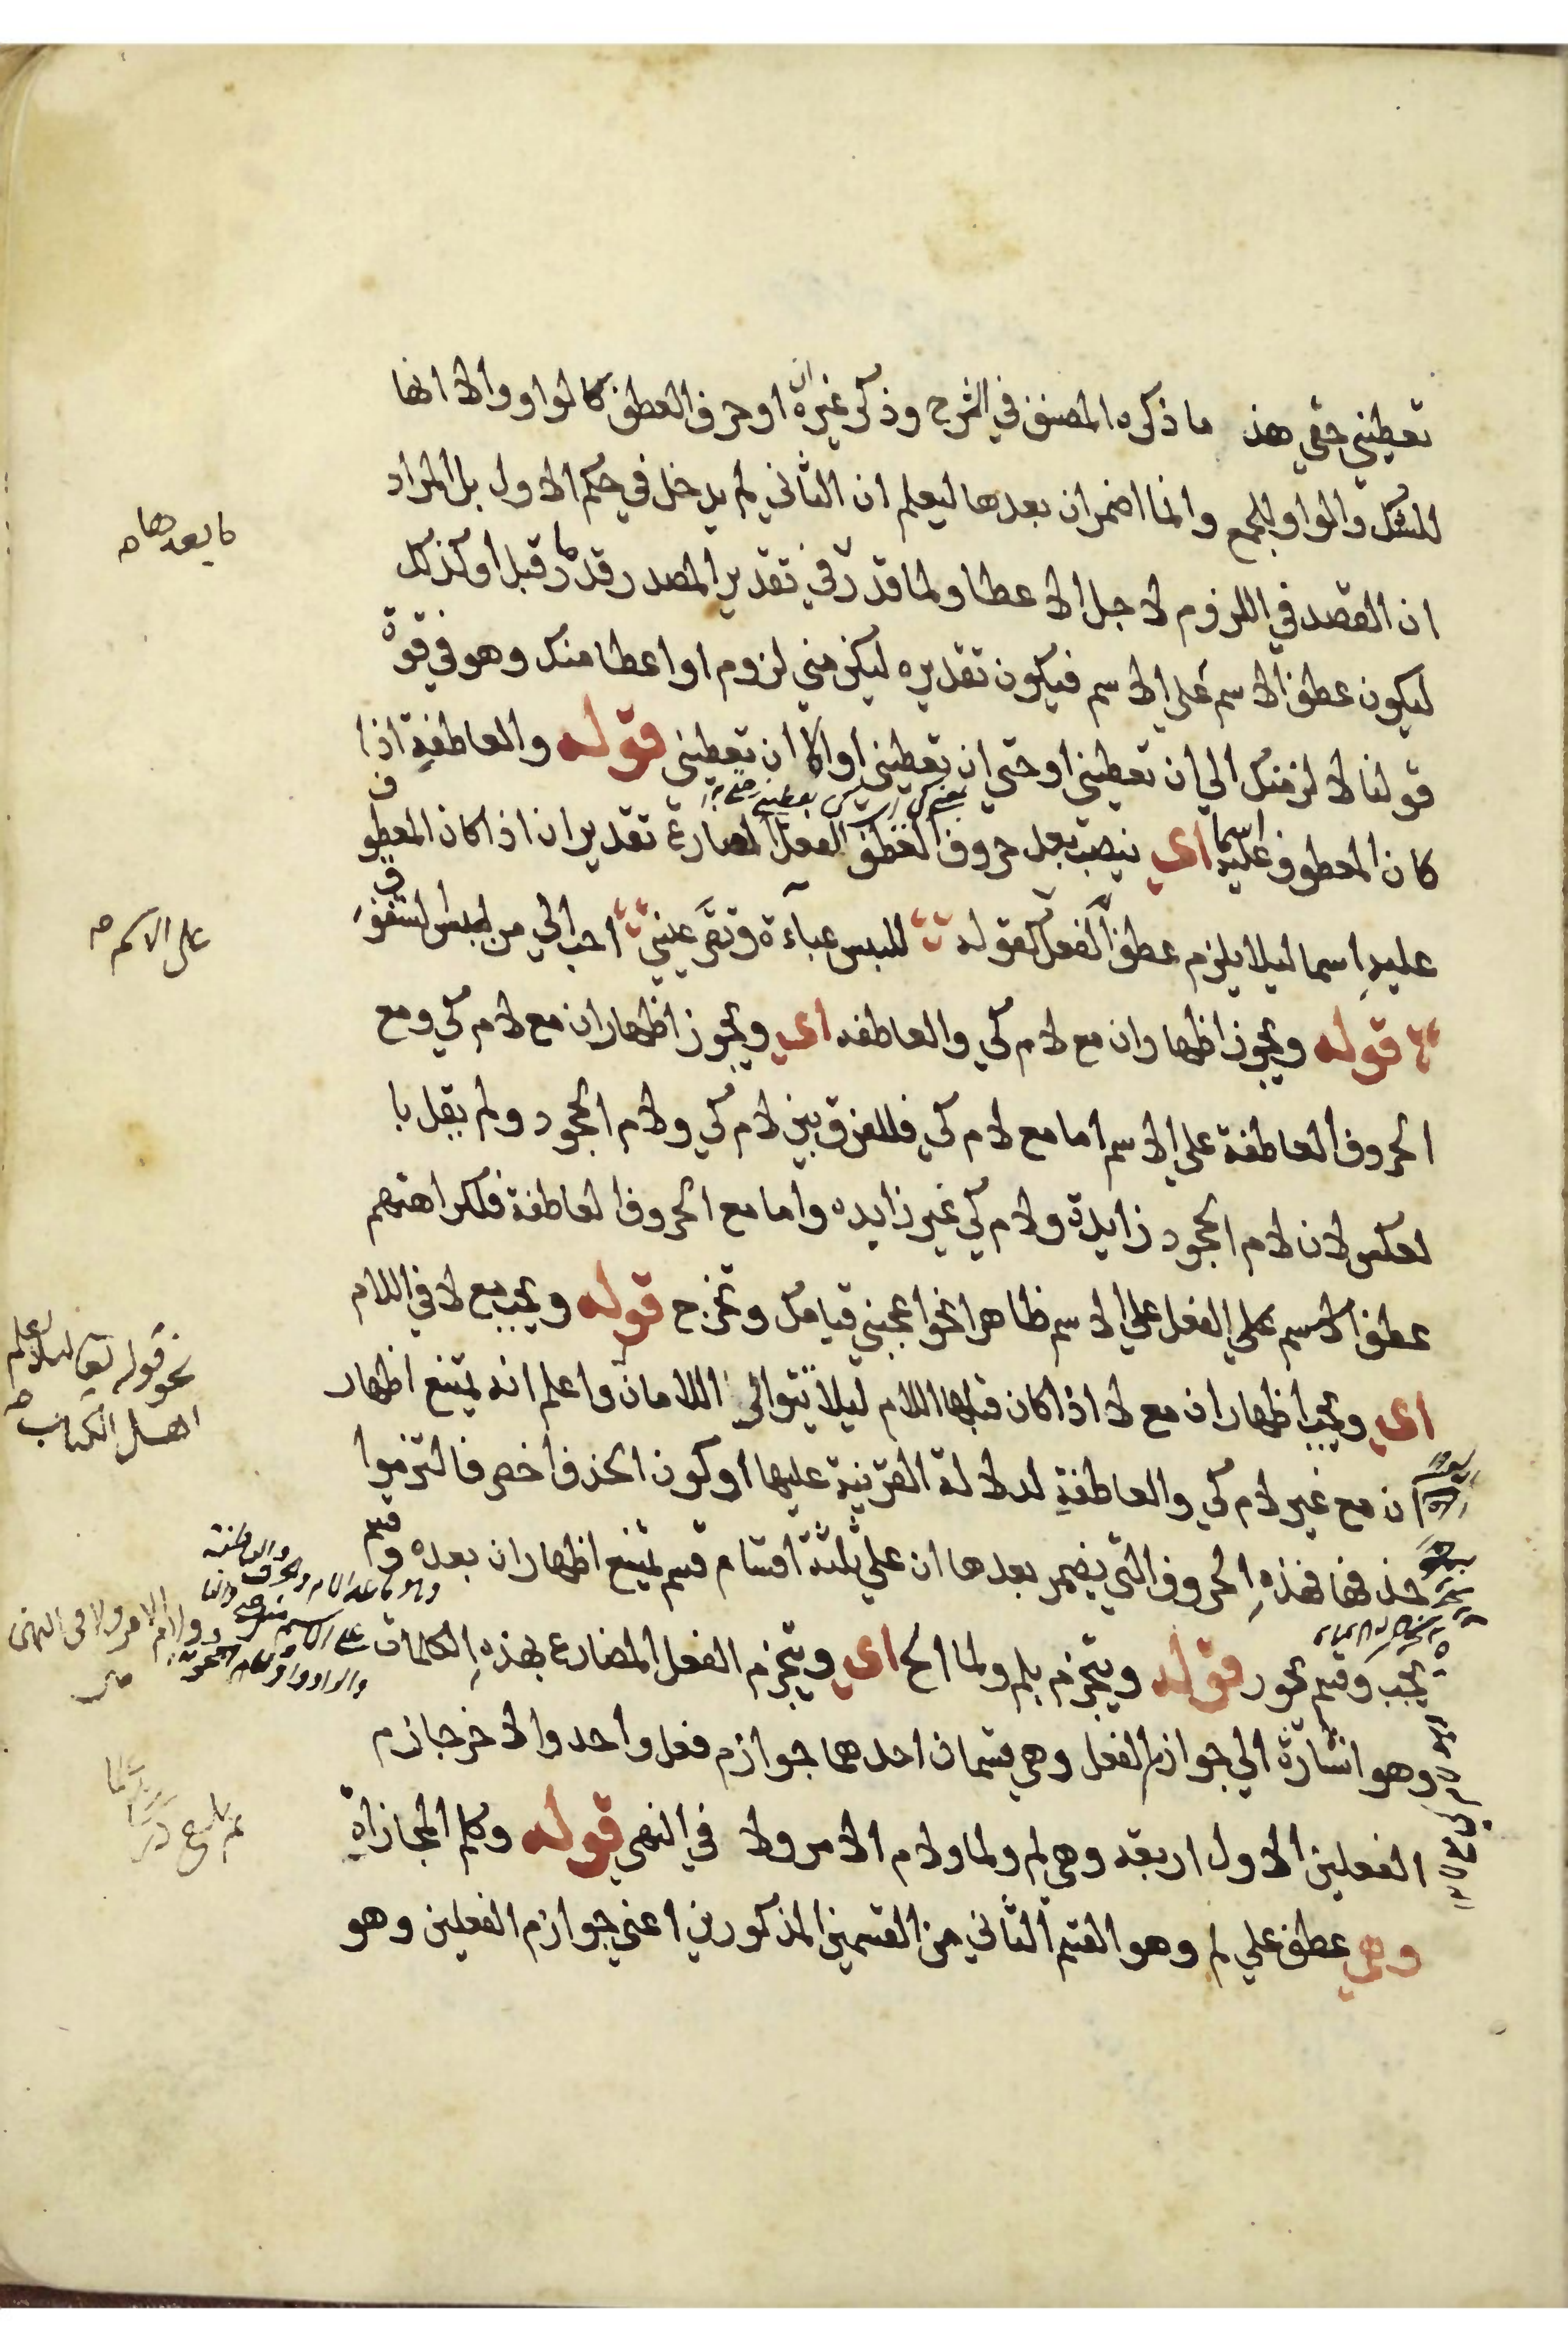 تعطيني حقي هذا ما ذكره المصنف في الشرح وذكر غيره ان او حرف العطف كالواو والا انها
للشك والواو للجمع وانما اضمر ان بعدها ليعلم ان الثاني لم يدخل في حكم الاول بل المراد
ان القصد في اللزوم لاجل الاعطا ولما قدر في تقدير المصدر قدر ما قبل او كذلك
ليكون عطف الاسم على الاسم فيكون تقديره ليكن مني لزوم او اعطا منك وهو في قوة
قولنا لالزمنك الي ان تعطيني او حتي ان تعطيني او الا ان تعطيني قوله والعاطفة اذا
كان المعطوف عليه اسما اي ينصب بعد حروف العطف الفعل المضارع تقدير ان اذا كان المعطوف
عليه اسما ليلا يلزم عطف الفعل كقوله للبس عباءة وتقر عيني احب الي من لبس الشفوف
قوله ويجوز اظهار ان مع لام كي والعاطفه اي ويجوز اظهار ان مع لام كي ومع
الحروف العاطفة علي الاسم اما مع لام كي فللفرق بين لام كي ولام الجحود ولم يقل با
لعكس لان لام الجحود زايدة ولام كي غير زايده واما مع الحروف العاطفة فلكراهتهم
عطف الاسم علي الفعل علي الاسم ظاهرا نحو اعجبني قيامك وتخرج قوله ويجب مع لا في اللام
اي ويجب اظهار ان مع لا اذا كان قبلها اللام ليلا يتوالي اللامان واعلم انه يمتنع اظهار
ان مع غير لام كي والعاطفة لدلالة القرينة عليها او كون الحذف اخصر فالتزموا
حذفها فهذه الحروف التي يضمر بعدها ان علي ثلثة اقسام قسم يمتنع اظهار ان بعده وقسم
يجب وقسم يجوز قوله وينجزم بلم ولما الخ اي وينجزم الفعل المضارع بهذه الكلمات
وهو اشارة الي جوازم الفعل وهي قسمان احدهما جوازم فعل واحد والاخر جازم
الفعلين الاول اربعة وهي لم ولما ولام الامر ولا في النهي قوله وكلم المجازاة
وهي عطف علي لم وهو القسم الثاني من القسمين المذكورين اعني جوازم الفعلين وهو
ما بعدها
على الاسم
نحو قوله تعالى لئلا يعلم
اهل الكتاب